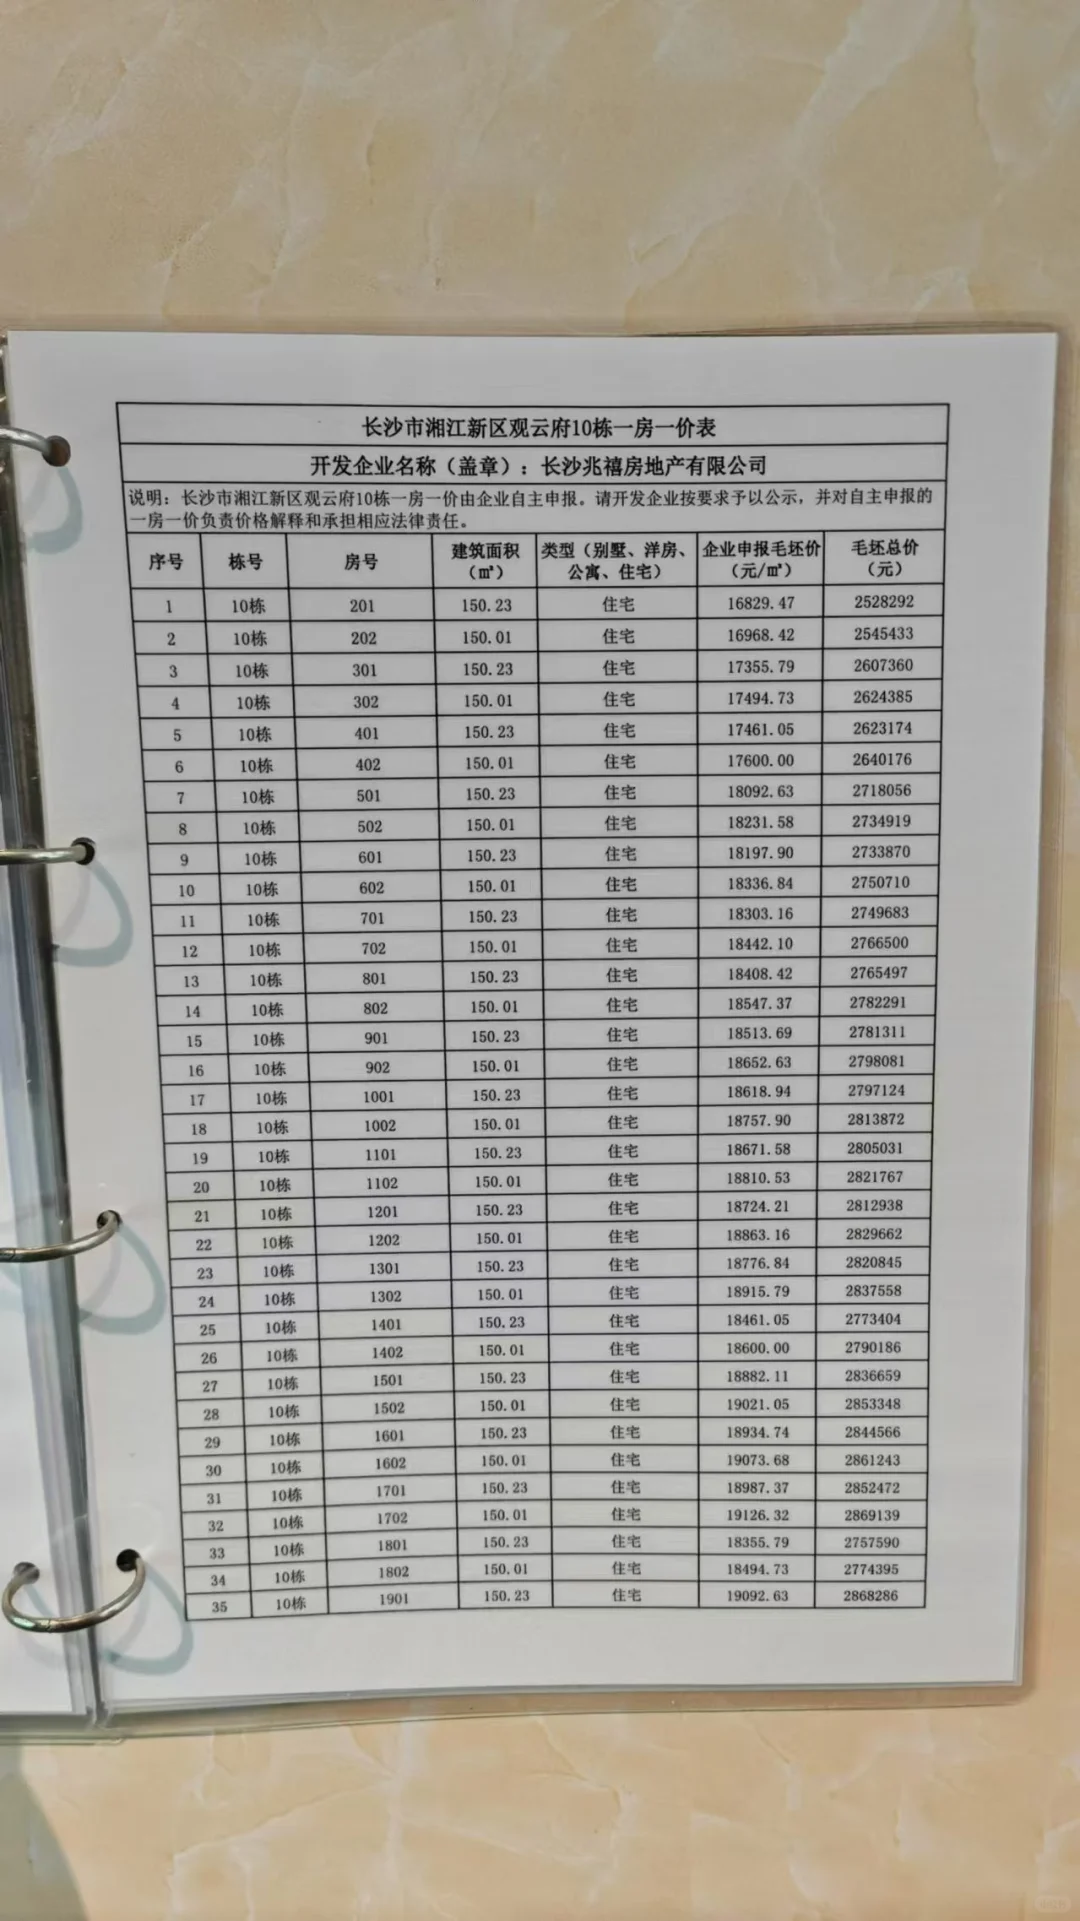 长沙市湘江新区观云府10栋一房一价表
开发企业名称（盖章）：长沙兆禧房地产有限公司
说明：长沙市湘江新区观云府10栋一房一价由企业自主申报。请开发企业按要求予以公示，并对自主申报的
一房一价负责价格解释和承担相应法律责任。
序号 栋号 房号 建筑面积（㎡） 类型（别墅、洋房、公寓、住宅） 企业申报毛坯价（元/㎡） 毛坯总价（元）
1 10栋 201 150.23 住宅 16829.47 2528292
2 10栋 202 150.01 住宅 16968.42 2545433
3 10栋 301 150.23 住宅 17355.79 2607360
4 10栋 302 150.01 住宅 17494.73 2624385
5 10栋 401 150.23 住宅 17461.05 2623174
6 10栋 402 150.01 住宅 17600.00 2640176
7 10栋 501 150.23 住宅 18092.63 2718056
8 10栋 502 150.01 住宅 18231.58 2734919
9 10栋 601 150.23 住宅 18197.90 2733870
10 10栋 602 150.01 住宅 18336.84 2750710
11 10栋 701 150.23 住宅 18303.16 2749683
12 10栋 702 150.01 住宅 18442.10 2766500
13 10栋 801 150.23 住宅 18408.42 2765497
14 10栋 802 150.01 住宅 18547.37 2782291
15 10栋 901 150.23 住宅 18513.69 2781311
16 10栋 902 150.01 住宅 18652.63 2798081
17 10栋 1001 150.23 住宅 18618.94 2797124
18 10栋 1002 150.01 住宅 18757.90 2813872
19 10栋 1101 150.23 住宅 18671.58 2805031
20 10栋 1102 150.01 住宅 18810.53 2821767
21 10栋 1201 150.23 住宅 18724.21 2812938
22 10栋 1202 150.01 住宅 18863.16 2829662
23 10栋 1301 150.23 住宅 18776.84 2820845
24 10栋 1302 150.01 住宅 18915.79 2837558
25 10栋 1401 150.23 住宅 18461.05 2773404
26 10栋 1402 150.01 住宅 18600.00 2790186
27 10栋 1501 150.23 住宅 18882.11 2836659
28 10栋 1502 150.01 住宅 19021.05 2853348
29 10栋 1601 150.23 住宅 18934.74 2844566
30 10栋 1602 150.01 住宅 19073.68 2861243
31 10栋 1701 150.23 住宅 18987.37 2852472
32 10栋 1702 150.01 住宅 19126.32 2869139
33 10栋 1801 150.23 住宅 18355.79 2757590
34 10栋 1802 150.01 住宅 18494.73 2774395
35 10栋 1901 150.23 住宅 19092.63 2868286